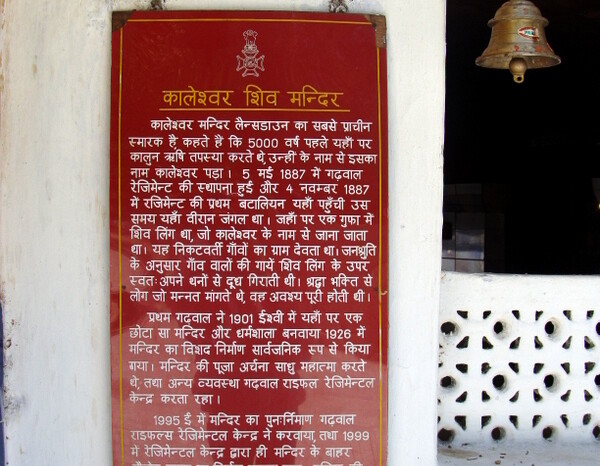 कालेश्वर शिव मन्दिर
कालेश्वर मन्दिर लैन्सडाउन का सबसे प्राचीन
स्मारक है कहते हैं कि 5000 वर्ष पहले यहाँ पर
कालुन ऋषि तपस्या करते थे, उन्हीं के नाम से इसका
नाम कालेश्वर पड़ा। 5 मई 1887 में गढ़वाल
रेजिमेन्ट की स्थापना हुई और 4 नवम्बर 1887
में रजिमेन्ट की प्रथम बटालियन यहाँ पहुँची उस
समय यहाँ वीरान जंगल था। जहाँ पर एक गुफा में
शिव लिंग था, जो कालेश्वर के नाम से जाना जाता
था। यह निकटवर्ती गाँवों का ग्राम देवता था। जनश्रुति
के अनुसार गाँव वालों की गायें शिव लिंग के उपर
स्वतः अपने थनों से दूध गिराती थी। श्रद्धा भक्ति से
लोग जो मन्नत मांगते थे, वह अवश्य पूरी होती थी।
प्रथम गढ़वाल ने 1901 ईश्वी में यहाँ पर एक
छोटा सा मन्दिर और धर्मशाला बनवाया 1926 में
मन्दिर का विशद निर्माण सार्वजनिक रूप से किया
गया। मन्दिर की पूजा अर्चना साधु महात्मा करते
थे, तथा अन्य व्यवस्था गढ़वाल राइफल रेजिमेन्टल
केन्द्र करता रहा।
1995 ई में मन्दिर का पुनःर्निमाण गढ़वाल
राइफल्स रेजिमेन्टल केन्द्र ने करवाया, तथा 1999
में रेजिमेन्टल केन्द्र द्वारा ही मन्दिर के बाहर